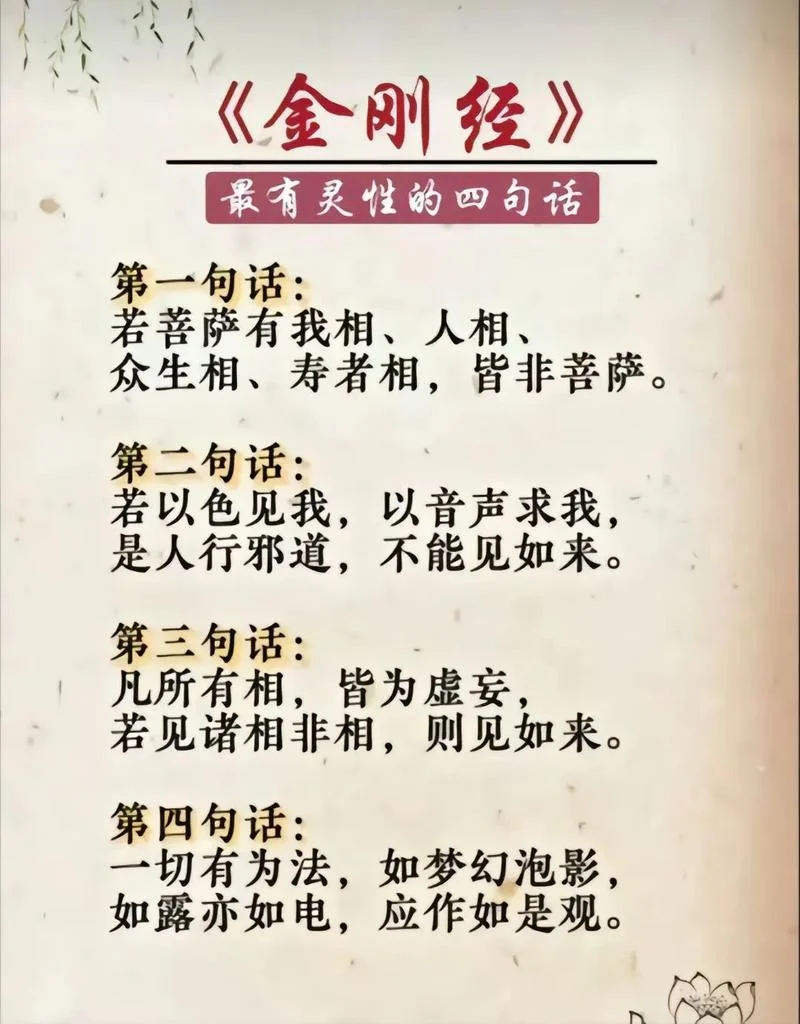 《金刚经》
最有灵性的四句话
第一句话：
若菩萨有我相、人相、
众生相、寿者相，皆非菩萨。
第二句话：
若以色见我，以音声求我，
是人行邪道，不能见如来。
第三句话：
凡所有相，皆为虚妄，
若见诸相非相，则见如来。
第四句话：
一切有为法，如梦幻泡影，
如露亦如电，应作如是观。